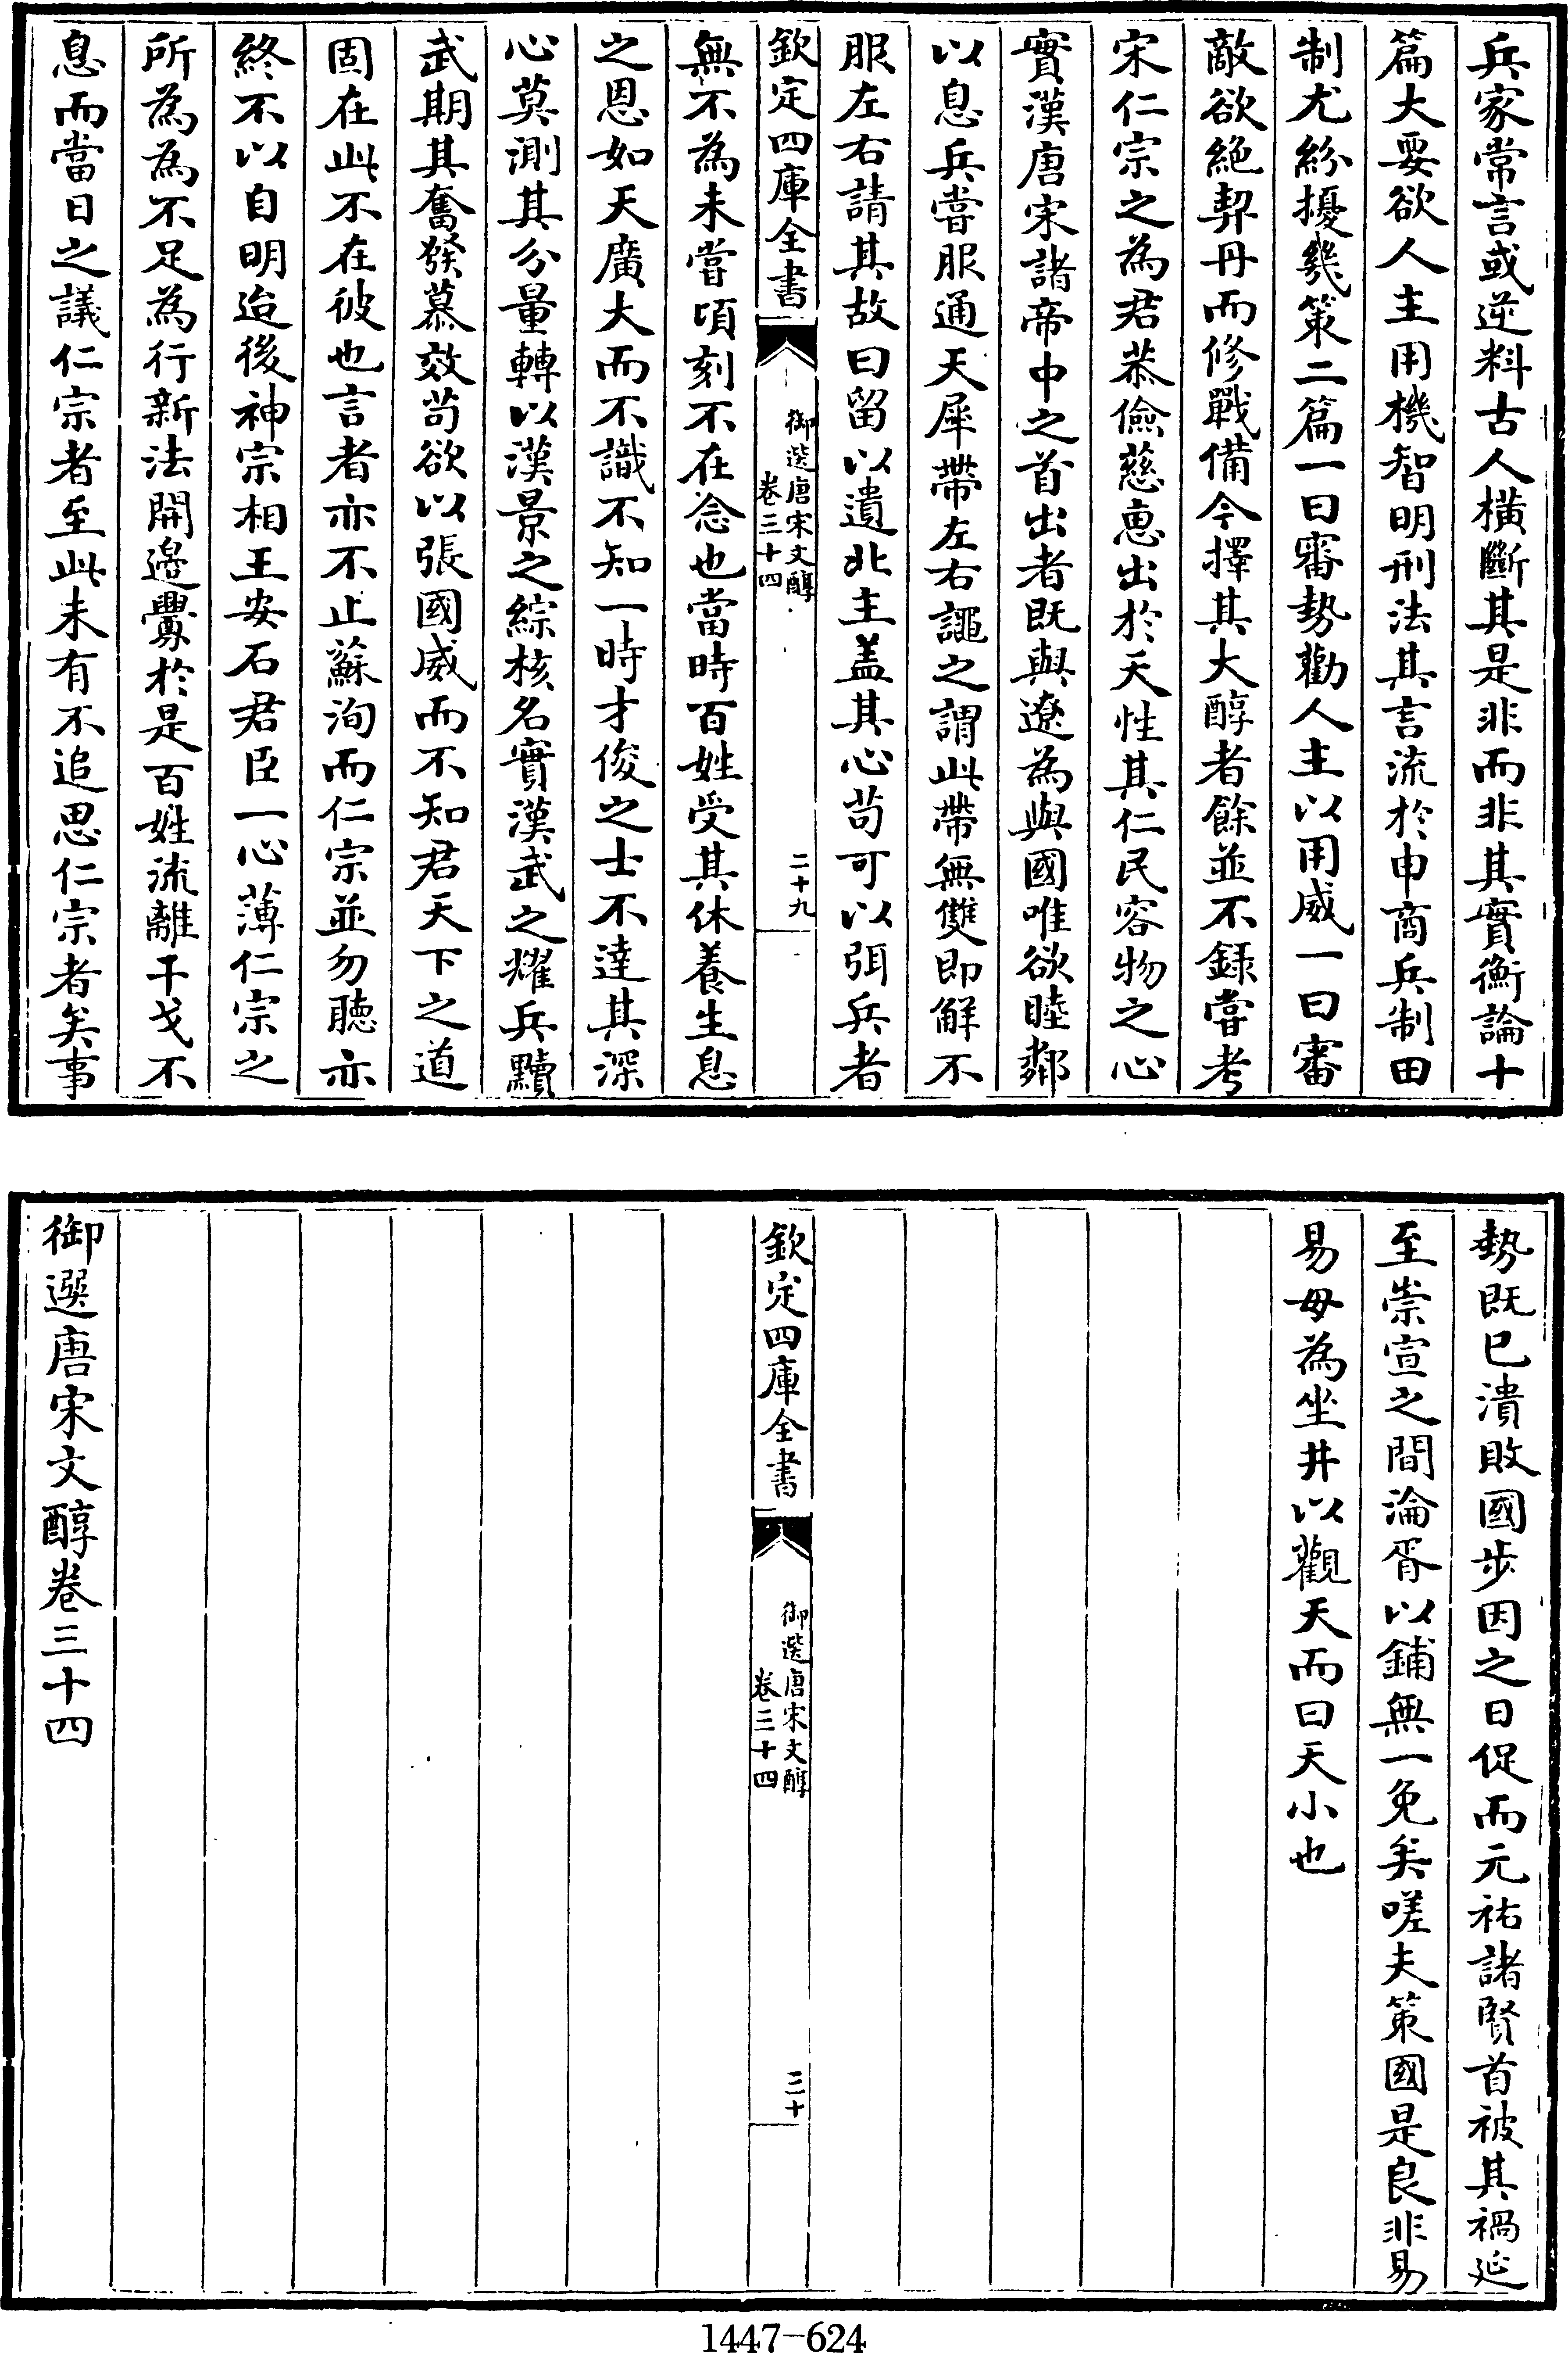 兵家常言或逆料古人橫斷其是非而非其實衡論十
篇大要欲人主用機智明刑法其言流於申商兵制田
制尤紛擾幾策二篇一曰審勢勸人主以用威一曰審
敵欲絕契丹而修戰備今擇其大醇者餘並不録嘗考
宋仁宗之為君恭儉慈恵出於天性其仁民容物之心
實漢唐宋諸帝中之首出者既與遼為與國唯欲睦鄰
以息兵嘗服通天犀帶左右譝之謂此帶無雙即解不
服左右請其故曰留以遺北主盖其心苟可以弭兵者
欽定四庫全書
御選唐宋文醇
卷三十四
二十九
無不為未嘗頃刻不在念也當時百姓受其休養生息
之恩如天廣大而不識不知一時才俊之士不達其深
心莫測其分量轉以漢景之綜核名實漢武之耀兵黷
武期其奮發慕效苟欲以張國威而不知君天下之道
固在此不在彼也言者亦不止蘇洵而仁宗並勿聽亦
終不以自明迨後神宗相王安石君臣一心薄仁宗之
所為為不足為行新法開邊釁於是百姓流離干戈不
息而當日之議仁宗者至此未有不追思仁宗者矣事
勢既已潰敗國步因之日促而元祐諸賢首被其禍延
至崇宣之間淪胥以鋪無一免矣嗟夫策國是良非易
易毋為坐井以觀天而曰天小也
欽定四庫全書
御選唐宋文醇
卷三十四
三十
御選唐宋文醇卷三十四
1447-624